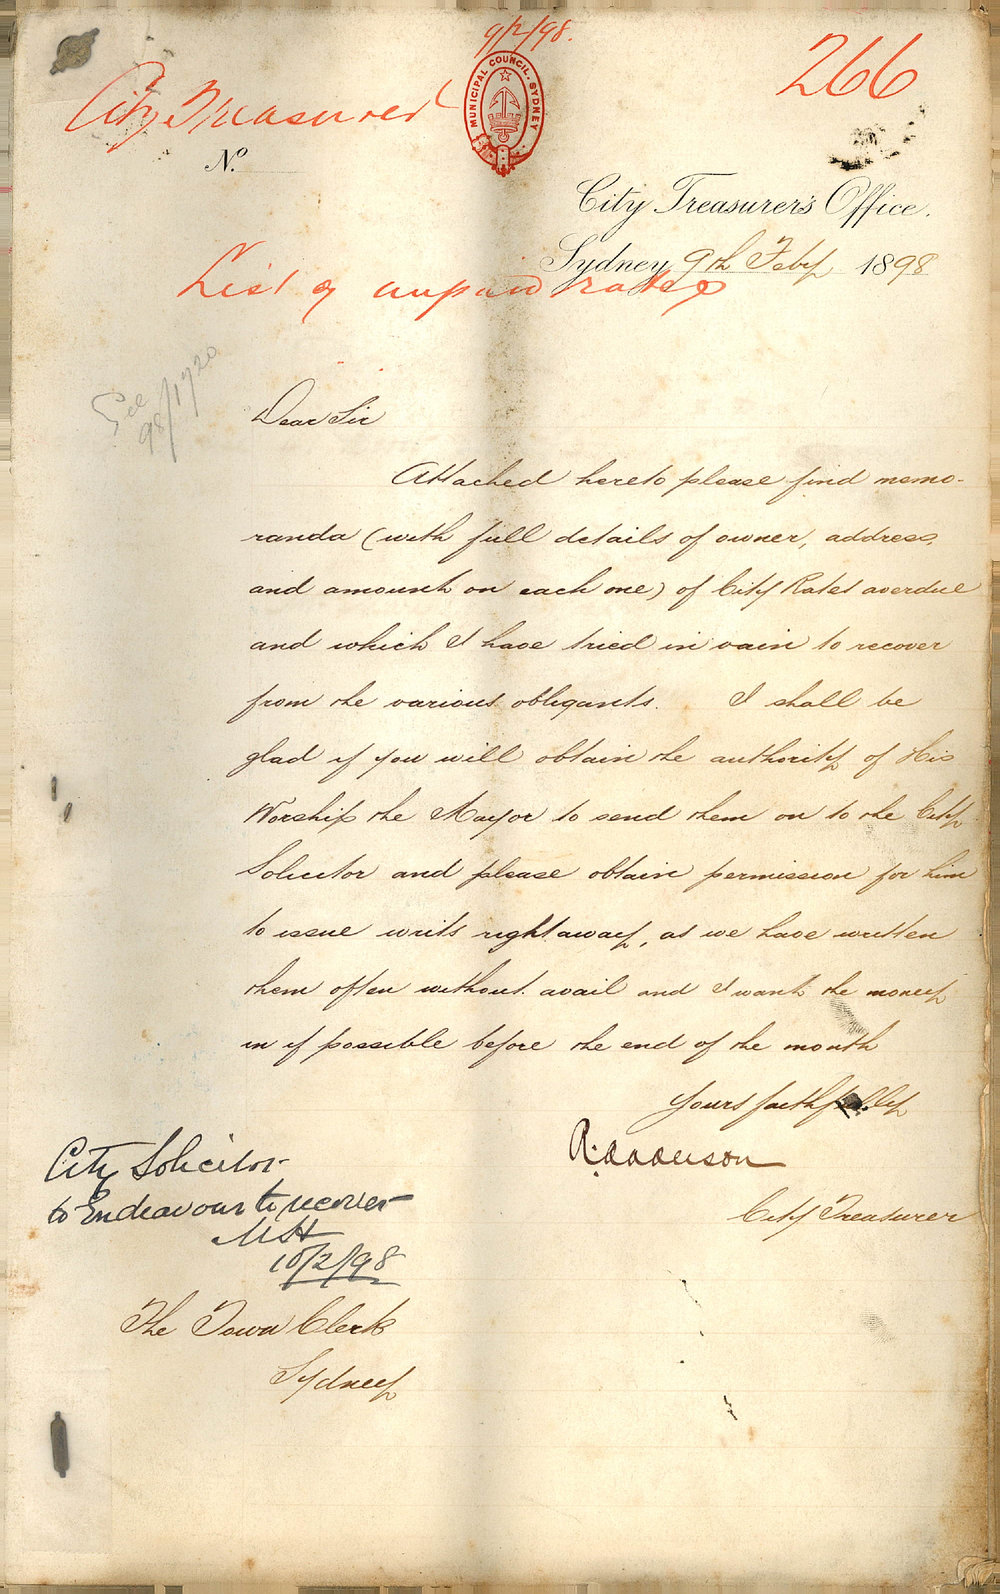 9/2/98.
266
City Treasurer
MUNICIPAL COUNCIL. SYDNEY
No.
City Treasurer's Office,
Sydney 9th Feby 1898
List of unpaid rates
See
98/1720
Dear Sir
Attached hereto please find memo-
randa (with full details of owner, address,
and amount on each one) of City Rates overdue
and which I have tried in vain to recover
from the various obligants. I shall be
glad if you will obtain the authority of His
Worship the Mayor to send them on to the City
Solicitor and please obtain permission for him
to issue writs right away, as we have written
them often without avail and I want the money
in if possible before the end of the month
Yours faithfully
City Treasurer
City Solicitor
to Endeavour to recover
10/2/98
The Town Clerk
Sydney